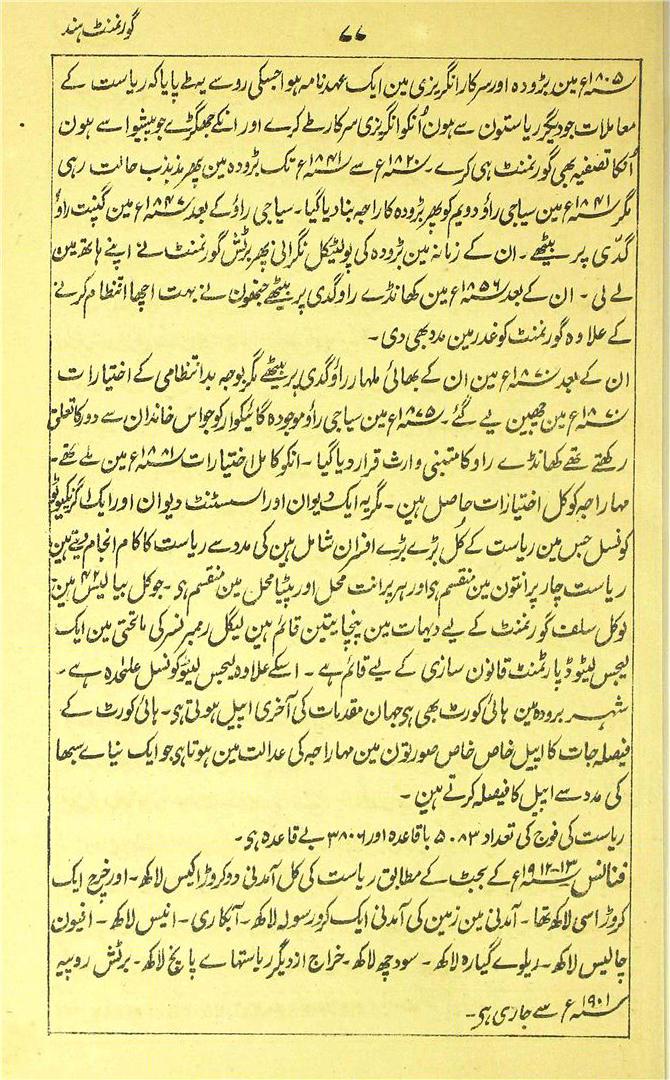 گورنمنٹ ہند
۷۷
۱۸۰۵ء مین بڑودہ اور سرکار انگریزی مین ایک عہد نامہ ہوا جسکی رو سے یہ طے پایا کہ ریاست کے
معاملات جو دیگر ریاستون سے ہون اُنکو انگریزی سرکار طے کرے اور انکے جھگڑے جو پیشوا سے ہون
اُنکا تصفیہ بھی گورنمنٹ ہی کرے۔ ۱۸۲۰ء سے ۱۸۴۱ء تک بڑودہ مین پھر مذبذب حالت رہی
مگر ۱۸۴۱ء مین سیاجی راؤ دویم کو پھر بڑودہ کا راجہ بنا دیا گیا۔ سیاجی راؤ کے بعد ۱۸۴۷ء مین گنپت راؤ
گدّی پر بیٹھے۔ ان کے زمانہ مین بڑودہ کی پولٹیکل نگرانی پھر برٹش گورنمنٹ نے اپنے ہاتھ مین
لے لی۔ ان کے بعد ۱۸۵۶ء مین کھانڈے راو گدی پر بیٹھے جنھون نے بہت اچھا انتظام کرنے
کے علاوہ گورنمنٹ کو غدر مین مدد بھی دی۔
ان کے بعد ۱۸۷۰ء مین ان کے بھائی ملہار راؤ گدی پر بیٹھے مگر بوجہ بد انتظامی کے اختیارات
۱۸۷۰ء مین چھین لیے گئے۔ ۱۸۷۵ء مین سیاجی راؤ موجودہ گائیکوار کو جو اس خاندان سے دور کا تعلق
رکھتے تھے کھانڈے راو کا متبنی وارث قرار دیا گیا۔ انکو کامل اختیارات ۱۸۸۱ء مین ملے تھے۔
مہاراجہ کو کل اختیارات حاصل ہین۔ مگر یہ ایک دیوان اور اسسٹنٹ دیوان اور ایک اگزیکیوٹو
کونسل جس مین ریاست کے کُل بڑے بڑے افسران شامل ہین کی مدد سے ریاست کا کام انجام دیتے ہین
ریاست چار پرانتون مین منقسم ہی اور ہر پرانت محل اور پیٹیا محل مین منقسم ہی۔ جو کل بیالیس ۴۲ ہین
لوکل سلف گورنمنٹ کے لیے دیہات مین پنچایتین قائم ہین لیگل رمبرنسر کی ماتحتی مین ایک
لیجس لیٹو ڈپارٹمنٹ قانون سازی کے لیے قائم ہے۔ اسکے علاوہ لیجس لیٹو کونسل علحٰدہ ہے۔
شہر برودہ مین ہائی کورٹ بھی ہی جہان مقدمات کی آخری اپیل ہوتی ہی۔ ہائی کورٹ کے
فیصلہ جات کا اپیل خاص خاص صورتون مین مہاراجہ کی عدالت مین ہوتا ہی جو ایک نیاے سبھا
کی مدد سے اپیل کا فیصلہ کرتے ہین۔
ریاست کی فوج کی تعداد ۵۰۸۳ باقاعدہ اور ۳۸۰۶ بے قاعدہ ہی۔
فنانس ۱۳-۱۹۱۲ء کے بجٹ کے مطابق ریاست کی کل آمدنی دو کروڑ اکیس لاکھ۔ اور خرچ ایک
کروڑ اسی لاکھ تھا۔ آمدنی مین زمین کی آمدنی ایک کرور سولہ لاکھ۔ آبکاری۔ انیس لاکھ۔ افیون
چالیس لاکھ۔ ریلوے گیارہ لاکھ۔ سود چھ لاکھ۔ خراج از دیگر ریاستہاے پانچ لاکھ۔ برٹش روپیہ
۱۹۰۱ء سے جاری ہی۔